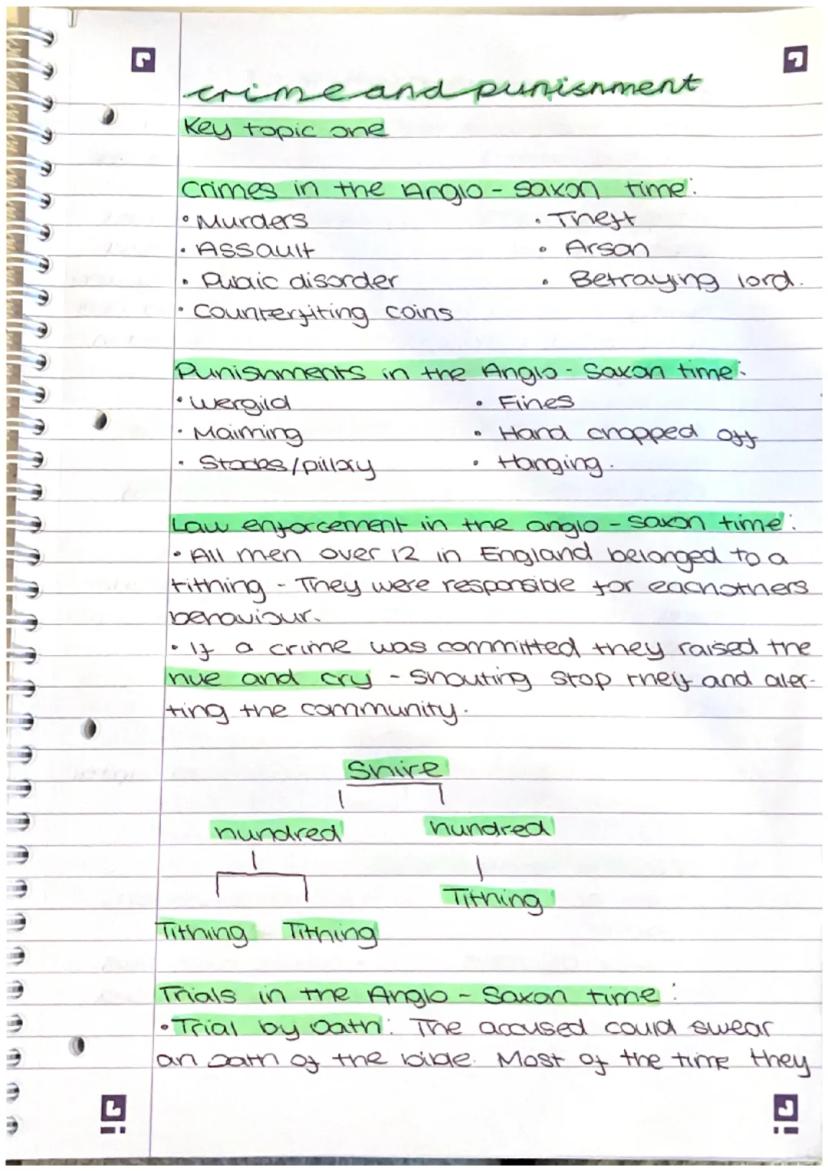 crime and punishment
Key topic one
Crimes in the Anglo-Saxon time:
• Murders • Theft
• Assault • Arson
• Public disorder • Betraying lord.
• Counterfiting coins
Punishments in the Anglo-Saxon time:
• Wergild • Fines
• Maiming • Hand chopped off
• Stocks/pillory • Hanging.
Law enforcement in the anglo-saxon time:
• All men over 12 in England belonged to a
tithing - They were responsible for eachothers
behaviour.
• If a crime was committed they raised the
hue and cry - Shouting stop theif and aler-
ting the community.
Shire
hundred hundred
Tithing
Tithing Tithing
Trials in the Anglo-Saxon time:
• Trial by Oath: The accused could swear
an oath of the bible. Most of the time they